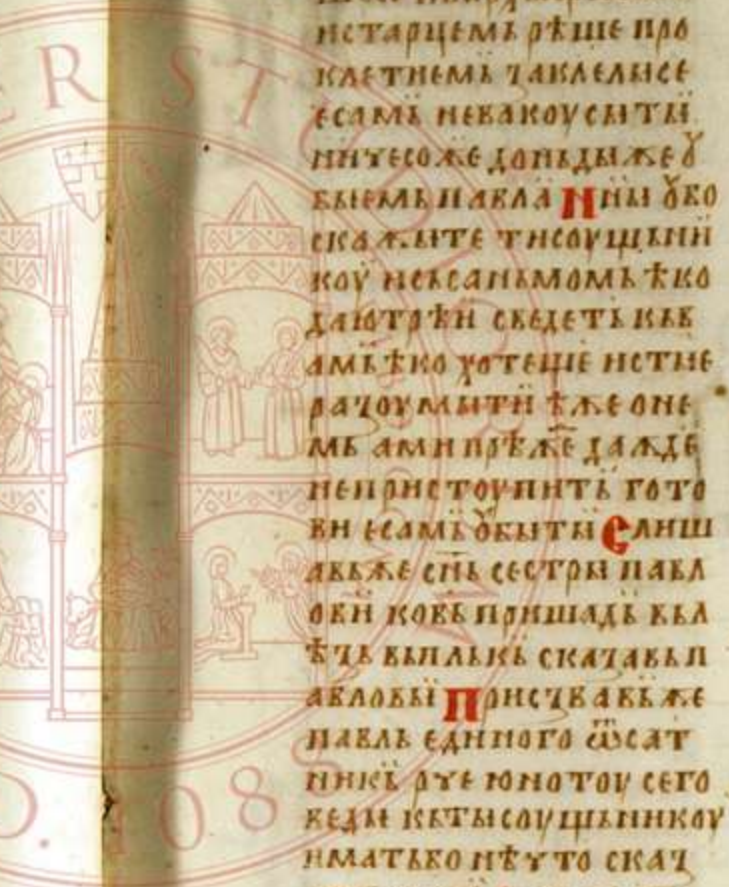 истарцемь рѣше про
клетиемь ꙁаклелисе
есамь невакоусити
ничесоже доньдиже ꙋ
биемь павла Нни ꙋбо
скажѣте тисоущьни
коу исьсаньмомь ѣко
даютрѣи сведеть кьв
амь ѣко хотеще истие
раꙁоумѣти ꙗже оне
мь ами прѣже даже
непристоупить гото
ви есамь ꙋбити Слиш
авьже снь сестри павл
ови ковь пришадь вьл
ѣꙁь вьпльκь скаꙁавьп
авлови Приꙁвавьже
павль единого ѿсат
никь рче юнотоу сего
веди кьтисоущьникоу
иматьбо нѣчто скаꙁ
ER STUD
D. 1088